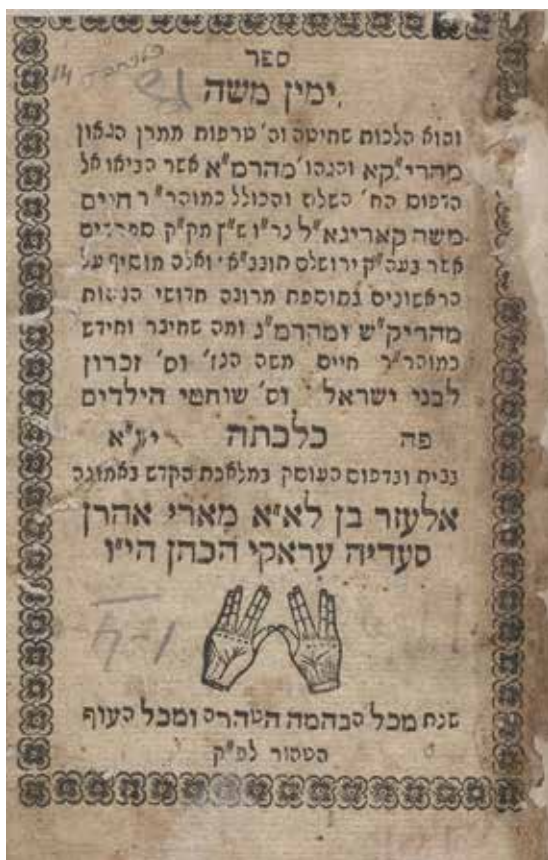 ספר
ימין משה
והוא הלכות שחיטה וה' טרפות ממרן הגאון
מהרי"קא והגהו' מהרמ"א אשר הביאו אל
הדפוס הח' השלם והכולל כמוהר"ר חיים
משה קאריגא"ל נר"ו ש"ץ מק"ק ספרדים
אשר בעה"ק ירושלם תובב"א ואלה מוסיף על
הראשונים בתוספת מרובה חדושי הגהות
מהריק"ש ומהרמ"ג ומה שחיבר וחידש
כמוהר"ר חיים משה הנז' וס' זכרון
לבני ישראל וס' שוחטי הילדים
פה כלכתה יע"א
בבית ובדפוס העוסק במלאכת הקדש באמונה
אלעזר בן לא"א מארי אהרן
סעדיה עראקי הכהן הי"ו
שנת מכל הבהמה הטהרה ומכל העוף
הטהור לפ"ק